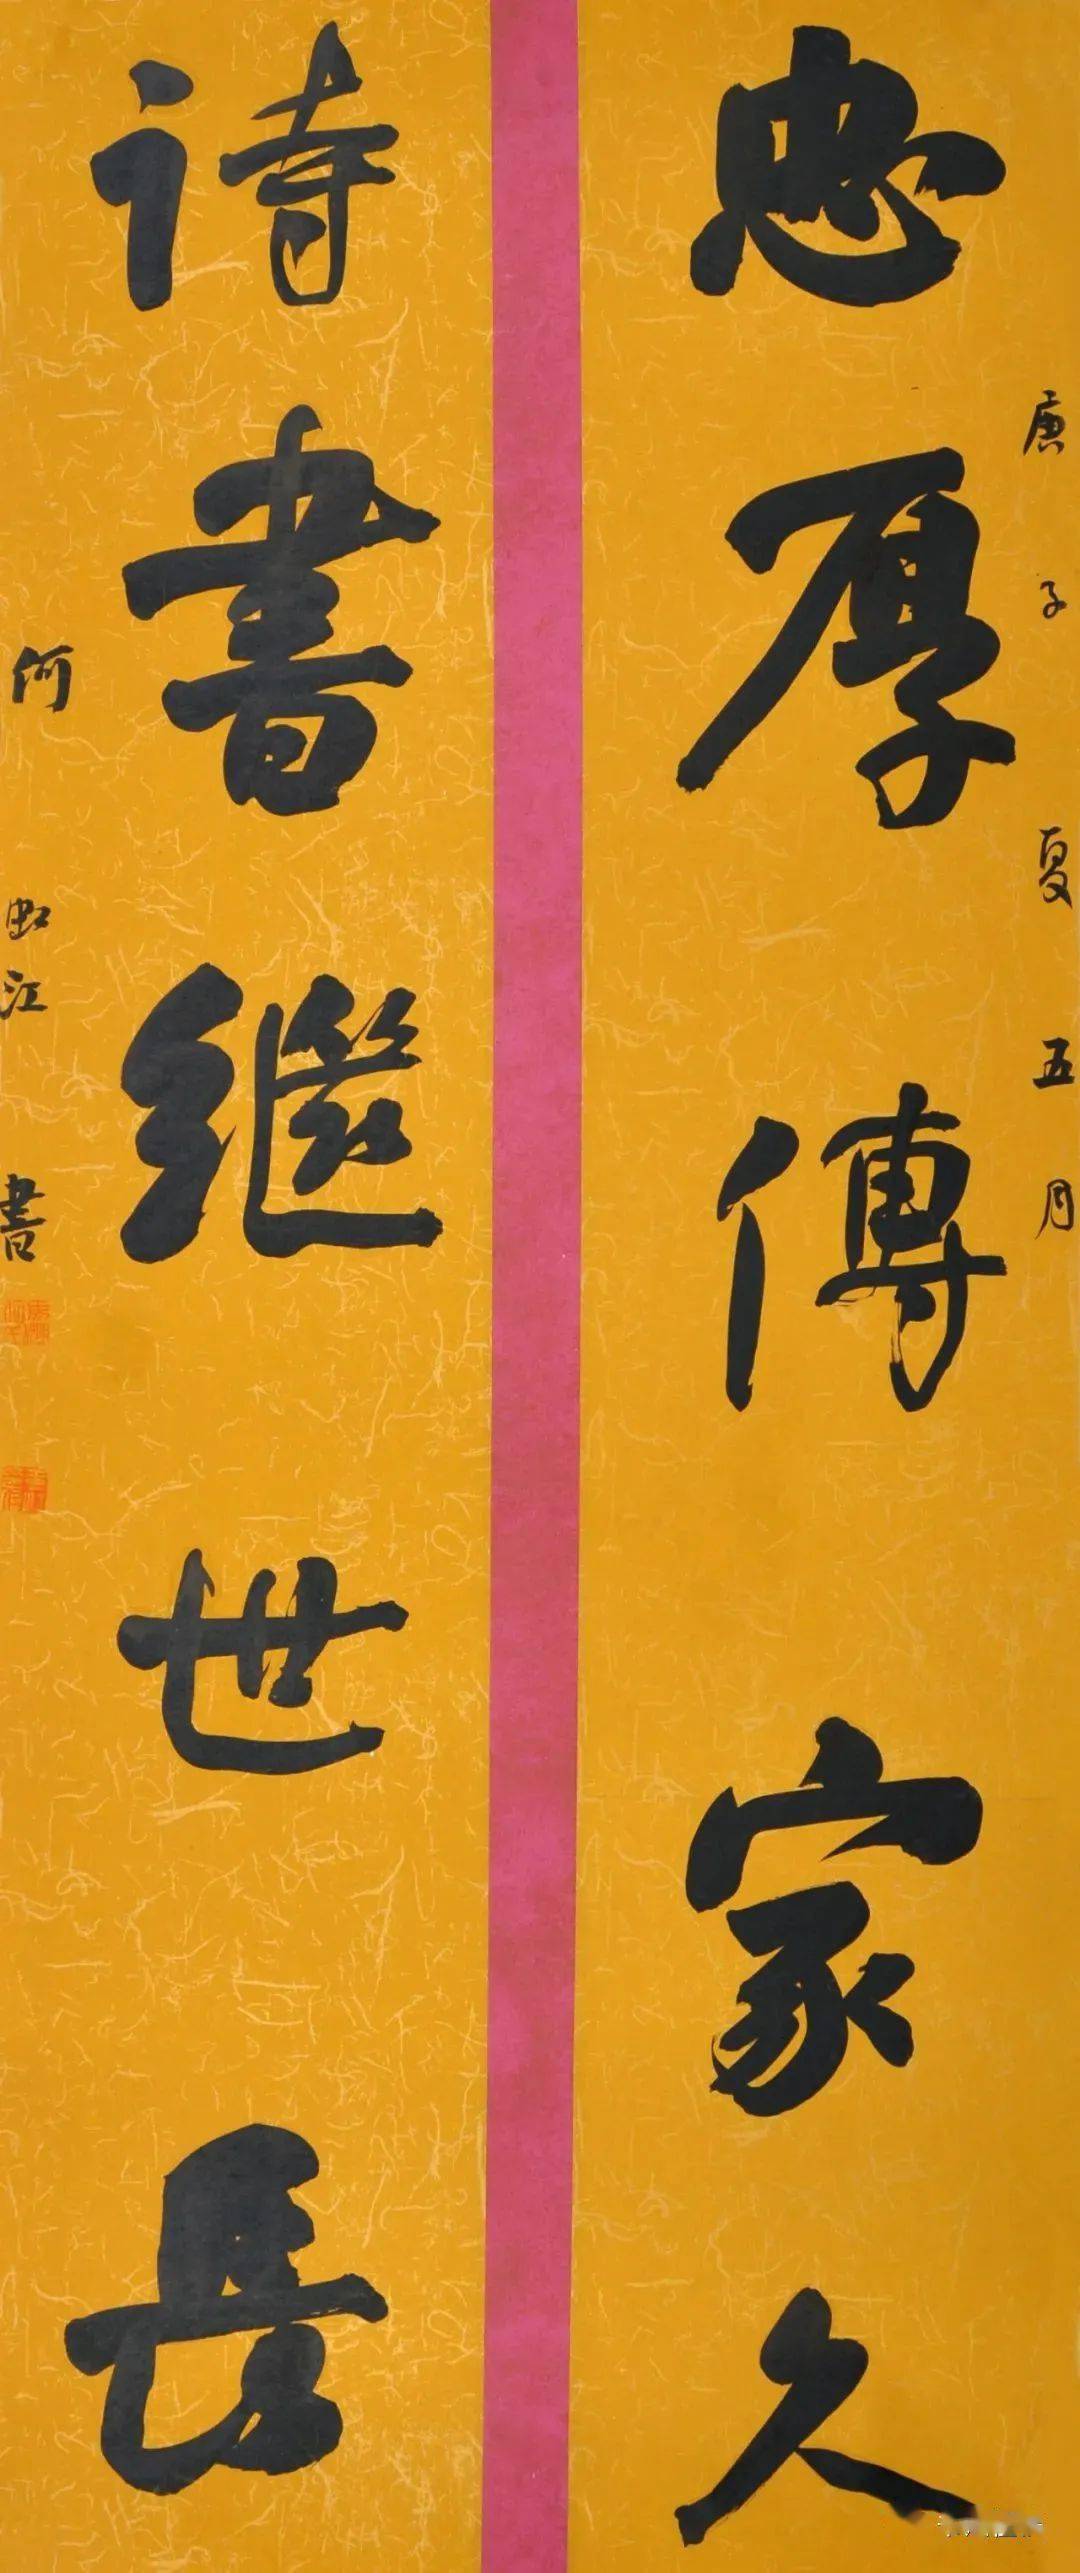 忠厚傳家久
庚子夏五月
詩書繼世長
何虹江書